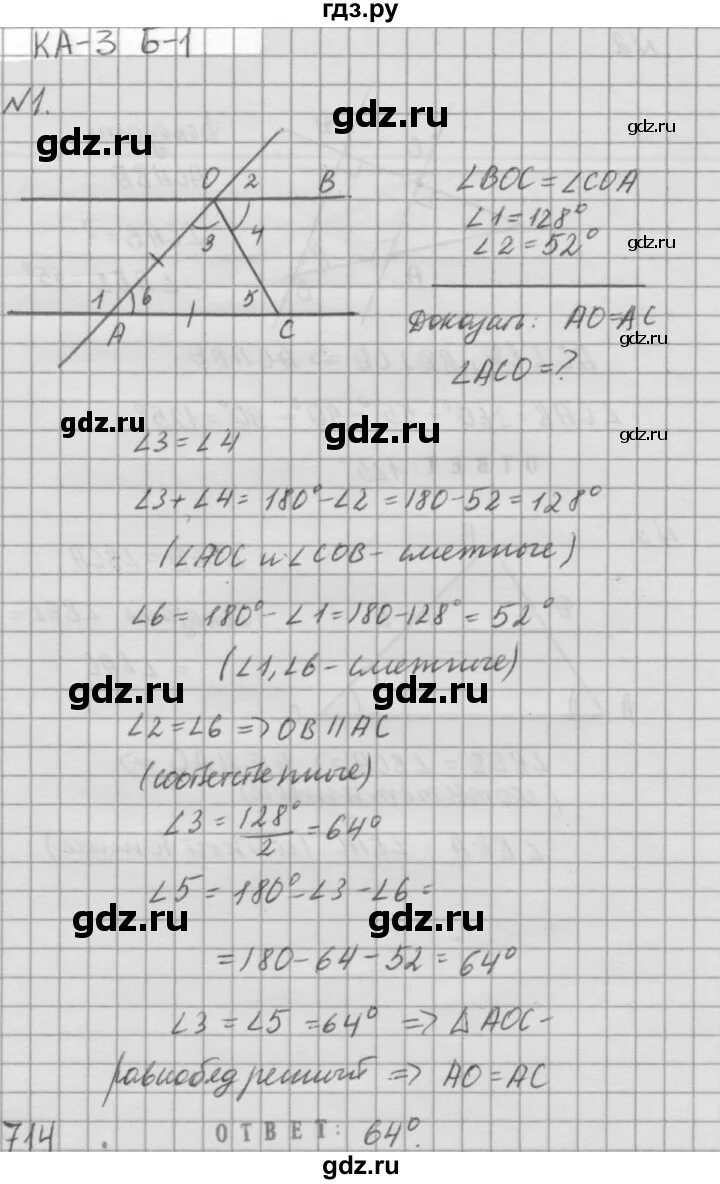 гдз.ру
КА-3 Б-1
№1.
gdz.ru gdz.ru gdz.ru
O 2 B
3 4
1 6 5
A C
∠BOC = ∠COA
∠1 = 128°
∠2 = 52°
gdz.ru
Доказать: AO = AC
gdz.ru
∠ACO = ?
gdz.ru gdz.ru gdz.ru
∠3 = ∠4
∠3 + ∠4 = 180° - ∠2 = 180 - 52 = 128°
(∠AOC и ∠COB - смежные)
∠6 = 180° - ∠1 = 180 - 128° = 52°
(∠1, ∠6 - смежные)
gdz.ru gdz.ru
∠2 = ∠6 => OB || AC
(соответственные)
∠3 = 128°/2 = 64°
∠5 = 180° - ∠3 - ∠6 =
gdz.ru gdz.ru
= 180 - 64 - 52 = 64°
∠3 = ∠5 = 64° => △AOC -
равнобедренный => AO = AC
714 . ОТВЕТ: 64°.
gdz.ru